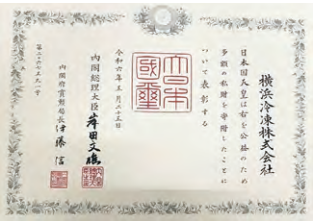 横浜冷凍株式会社
日本国天皇は右を公益のため
多額の私財を寄附したことに
ついて表彰する
大日本國璽
令和六年三月二十五日
内閣総理大臣 岸田文雄
内閣府賞勲局長 伊藤信